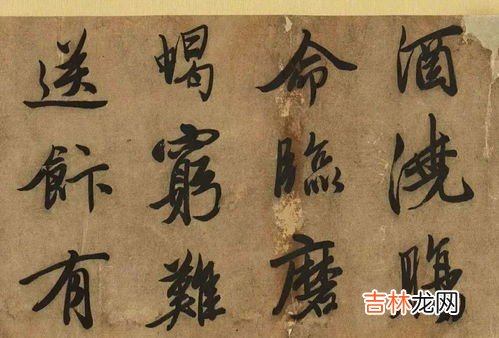 酒澆
命臨磨
蝎窮難
送飰有
吉林龙网